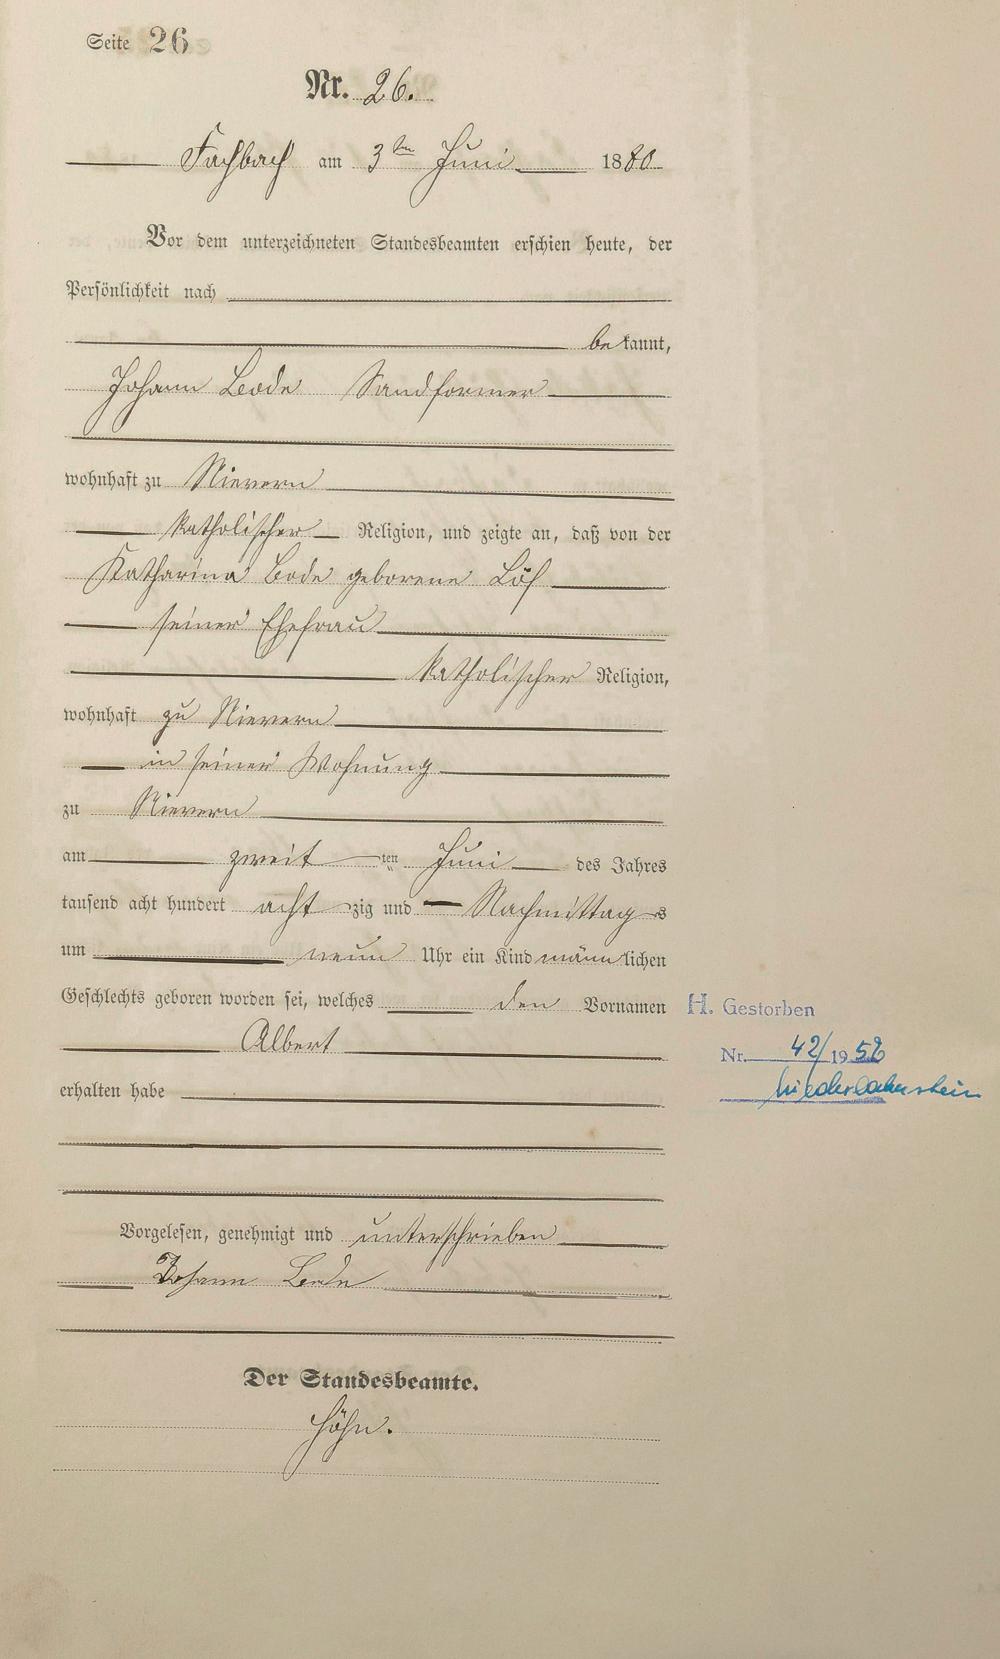 Seite 26
Nr. 26.
Fachbach am 3ten Juni 1880
Vor dem unterzeichneten Standesbeamten erschien heute, der
Persönlichkeit nach
bekannt,
Johann Bode Sandformer
wohnhaft zu Nievern
katholischer Religion, und zeigte an, daß von der
Katharina Bode geborene Löf
seiner Ehefrau
katholischer Religion,
wohnhaft zu Nievern
in seiner Wohnung
zu Nievern
am zweit ten Juni des Jahres
tausend acht hundert acht zig und Nachmittag s
um neun Uhr ein Kind männlichen
Geschlechts geboren worden sei, welches den Vornamen
Albert
erhalten habe
H. Gestorben
Nr. 42/1952
Niederlahnstein
Vorgelesen, genehmigt und unterschrieben
Johann Bode
Der Standesbeamte.
Höhn.